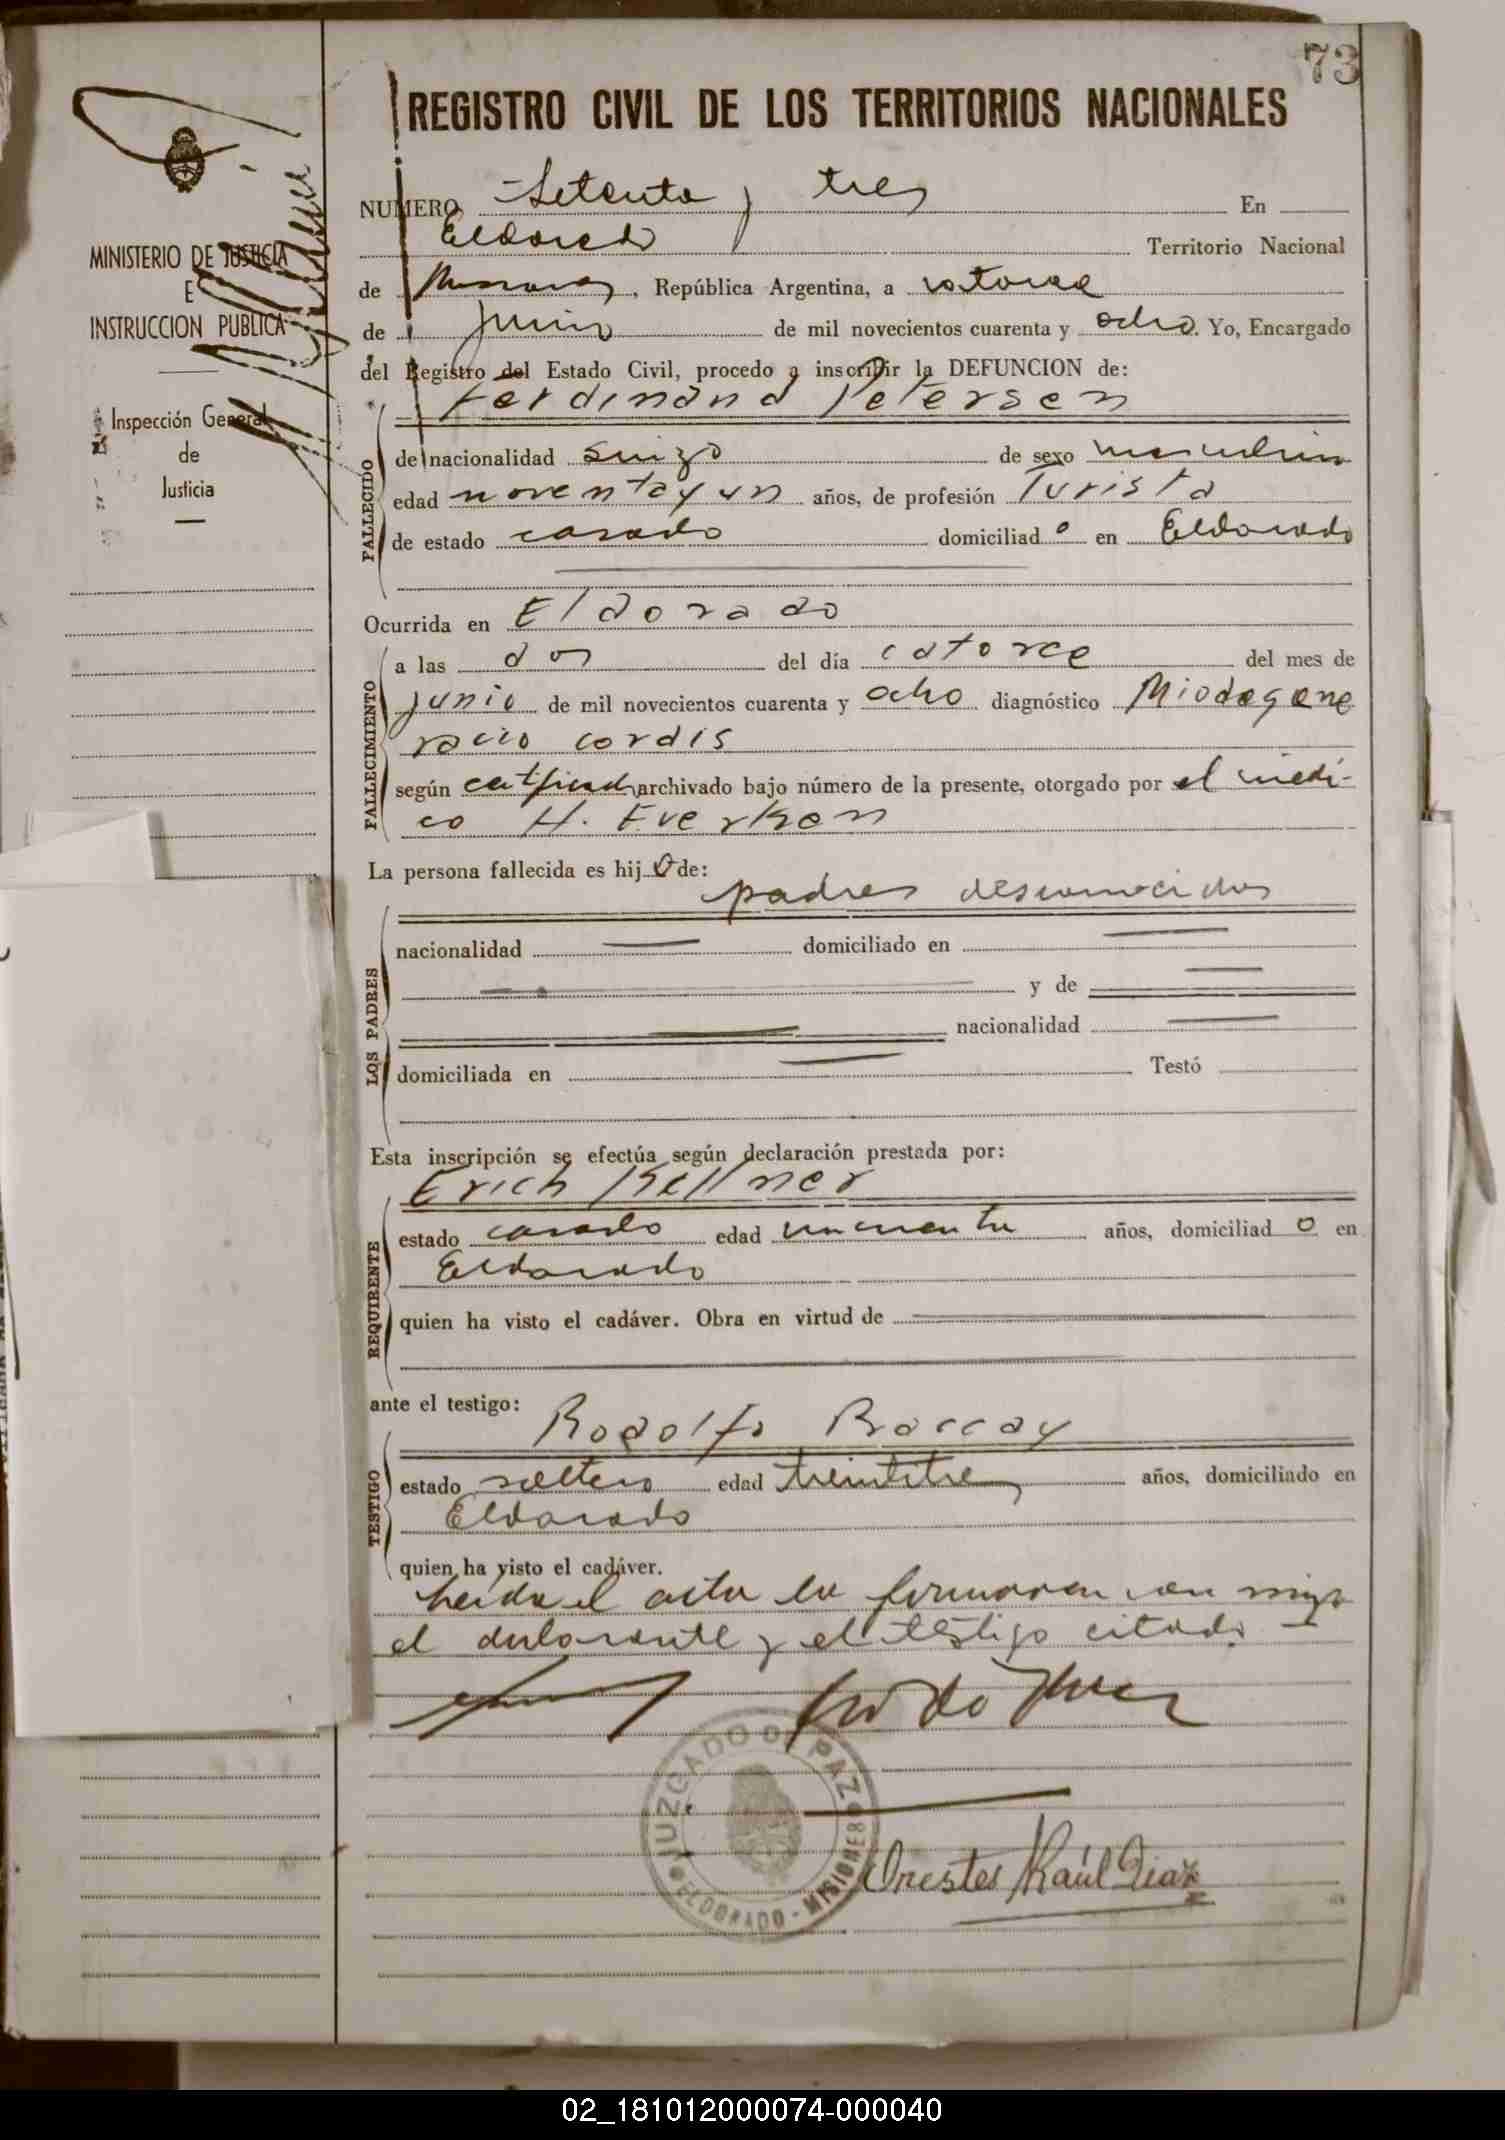 73
REGISTRO CIVIL DE LOS TERRITORIOS NACIONALES
MINISTERIO DE JUSTICIA
E
INSTRUCCION PUBLICA
Inspección General
de
Justicia
NUMERO Setenta y tres En
Eldorado Territorio Nacional
de Misiones, República Argentina, a catorce
de junio de mil novecientos cuarenta y ocho. Yo, Encargado
del Registro del Estado Civil, procedo a inscribir la DEFUNCION de:
Ferdinand Petersen
FALLECIDO
de nacionalidad suizo de sexo masculino
edad noventa y un años, de profesión Turista
de estado casado domiciliado en Eldorado
Ocurrida en Eldorado
FALLECIMIENTO
a las dos del día catorce del mes de
junio de mil novecientos cuarenta y ocho diagnóstico Miodegene
racio cordis
según certificado archivado bajo número de la presente, otorgado por el médi-
co H. Everken
La persona fallecida es hijo de:
padres desconocidos
LOS PADRES
nacionalidad domiciliado en
y de
nacionalidad
domiciliada en Testó
Esta inscripción se efectúa según declaración prestada por:
Erich Kellner
REQUIRENTE
estado casado edad cincuenta años, domiciliado en
Eldorado
quien ha visto el cadáver. Obra en virtud de
ante el testigo:
Rodolfo Baccay
TESTIGO
estado soltero edad treintitres años, domiciliado en
Eldorado
quien ha visto el cadáver.
Leída el acta la firmaron con migo
el declarante y el testigo citado
JUZGADO DE PAZ
ELDORADO - MISIONES
Orestes Raúl Diaz
02_181012000074-000040